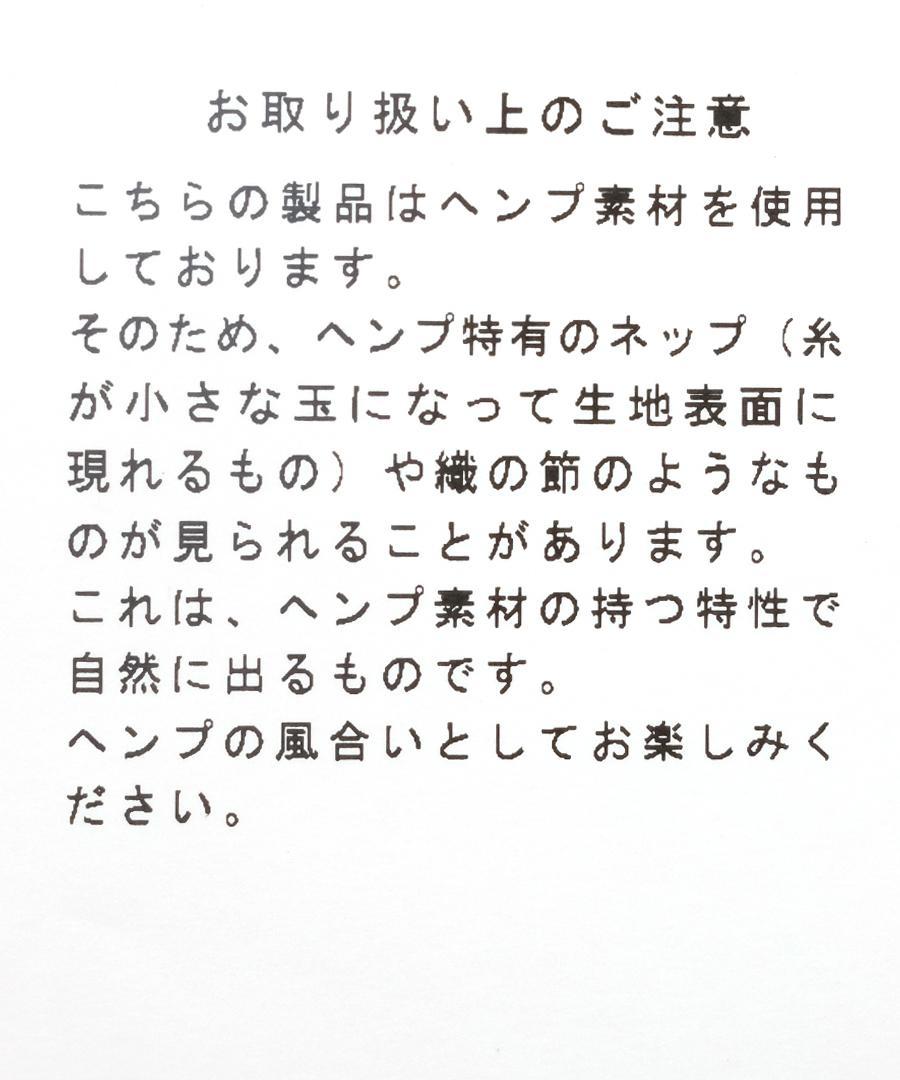 お取り扱い上のご注意
こちらの製品はヘンプ素材を使用
しております。
そのため、ヘンプ特有のネップ（糸
が小さな玉になって生地表面に
現れるもの）や織の節のようなも
のが見られることがあります。
これは、ヘンプ素材の持つ特性で
自然に出るものです。
ヘンプの風合いとしてお楽しみく
ださい。